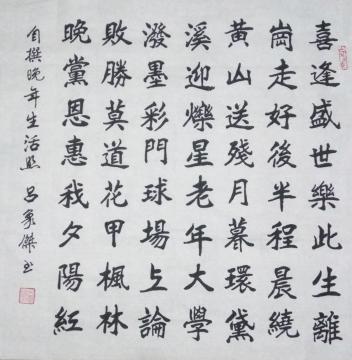 喜逢盛世樂此生離
崗走好後半程晨繞
黃山送殘月暮環黛
溪迎爍星老年大學
潑墨彩門球場上論
敗勝莫道花甲楓林
晚黨恩惠我夕陽紅
自撰晚年生活照 呂 傑书